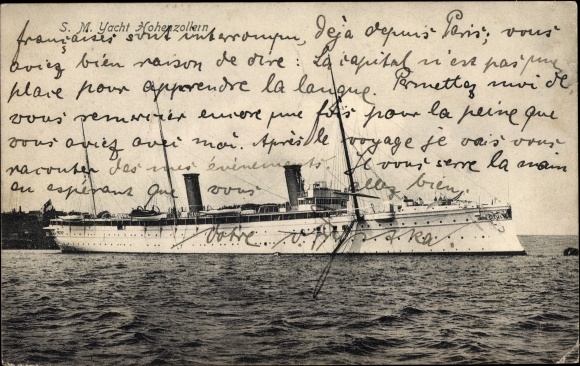 S. M. Yacht Hohenzollern
françaises sont interrompu, déjà depuis Paris; vous
aviez bien raison de dire: La capital n'est pas une
place pour apprendre la langue. Permettez moi de
vous remercier encore une fois pour la peine que
vous aviez avec moi. Après le voyage je vais vous
raconter des mes événements. Je vous serre la main
en espérant que vous allez bien.
Votre